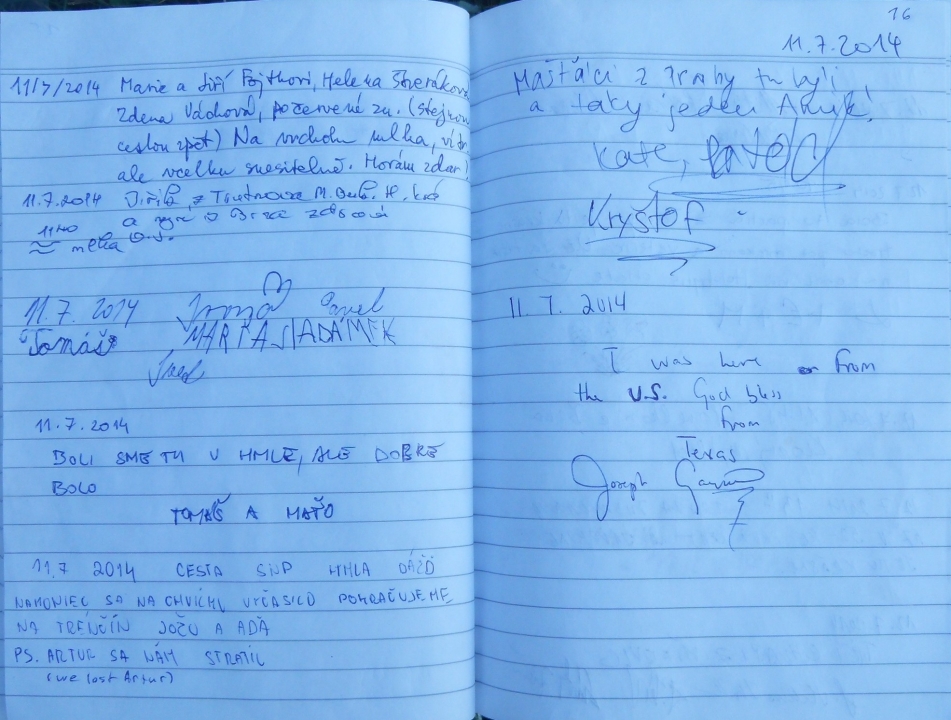 11/7/2014 Marie a Jiří Fojtkovi, Helena
Zdena Váchová, po červené zn. (stejnou
cestou zpět) Na vrcholu mlha, vítr
ale vcelku snesitelně. Horám zdar!
11.7.2014 z Trutnova M.
a
1140
mlha
11.7.2014 Irena Pavel
Tomáš MARŤAS ADÁMEK
11.7.2014
BOLI SME TU V HMLE, ALE DOBRÉ
BOLO
TOMÁŠ A MAŤO
11.7 2014 CESTA SNP HMLA DÁŽĎ
NAKONIEC SA NA CHVÍĽKU VYČASILO POKRAČUJEME
NA TRENČÍN JOŽU A ADA
PS. ARTUR SA NÁM STRATIL
(we lost Artur)
16
11.7.2014
Mašťáci z tu byli
a taky jeden
Kate,
Kryštof
11.7.2014
I was here from
the U.S. God bless
from
Texas
Joseph